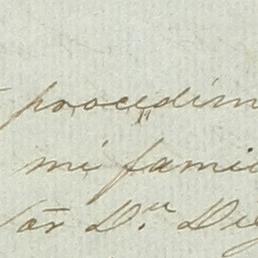 procedim
mi famil
Sōr Dⁿ. Die